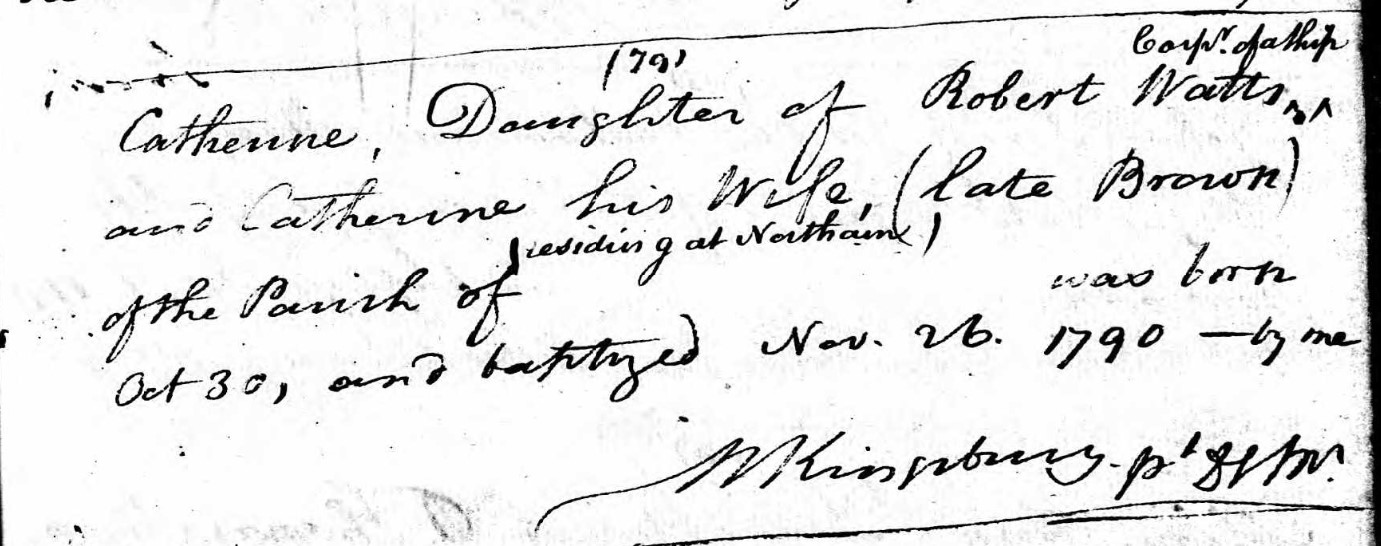 (79)
Catherine, Daughter of Robert Watts, Carpr. of a Ship
and Catherine his Wife, (late Brown)
of the Parish of (residing at Northam)
was born
Oct 30, and baptized Nov. 26. 1790 — by me
W Kingsbury